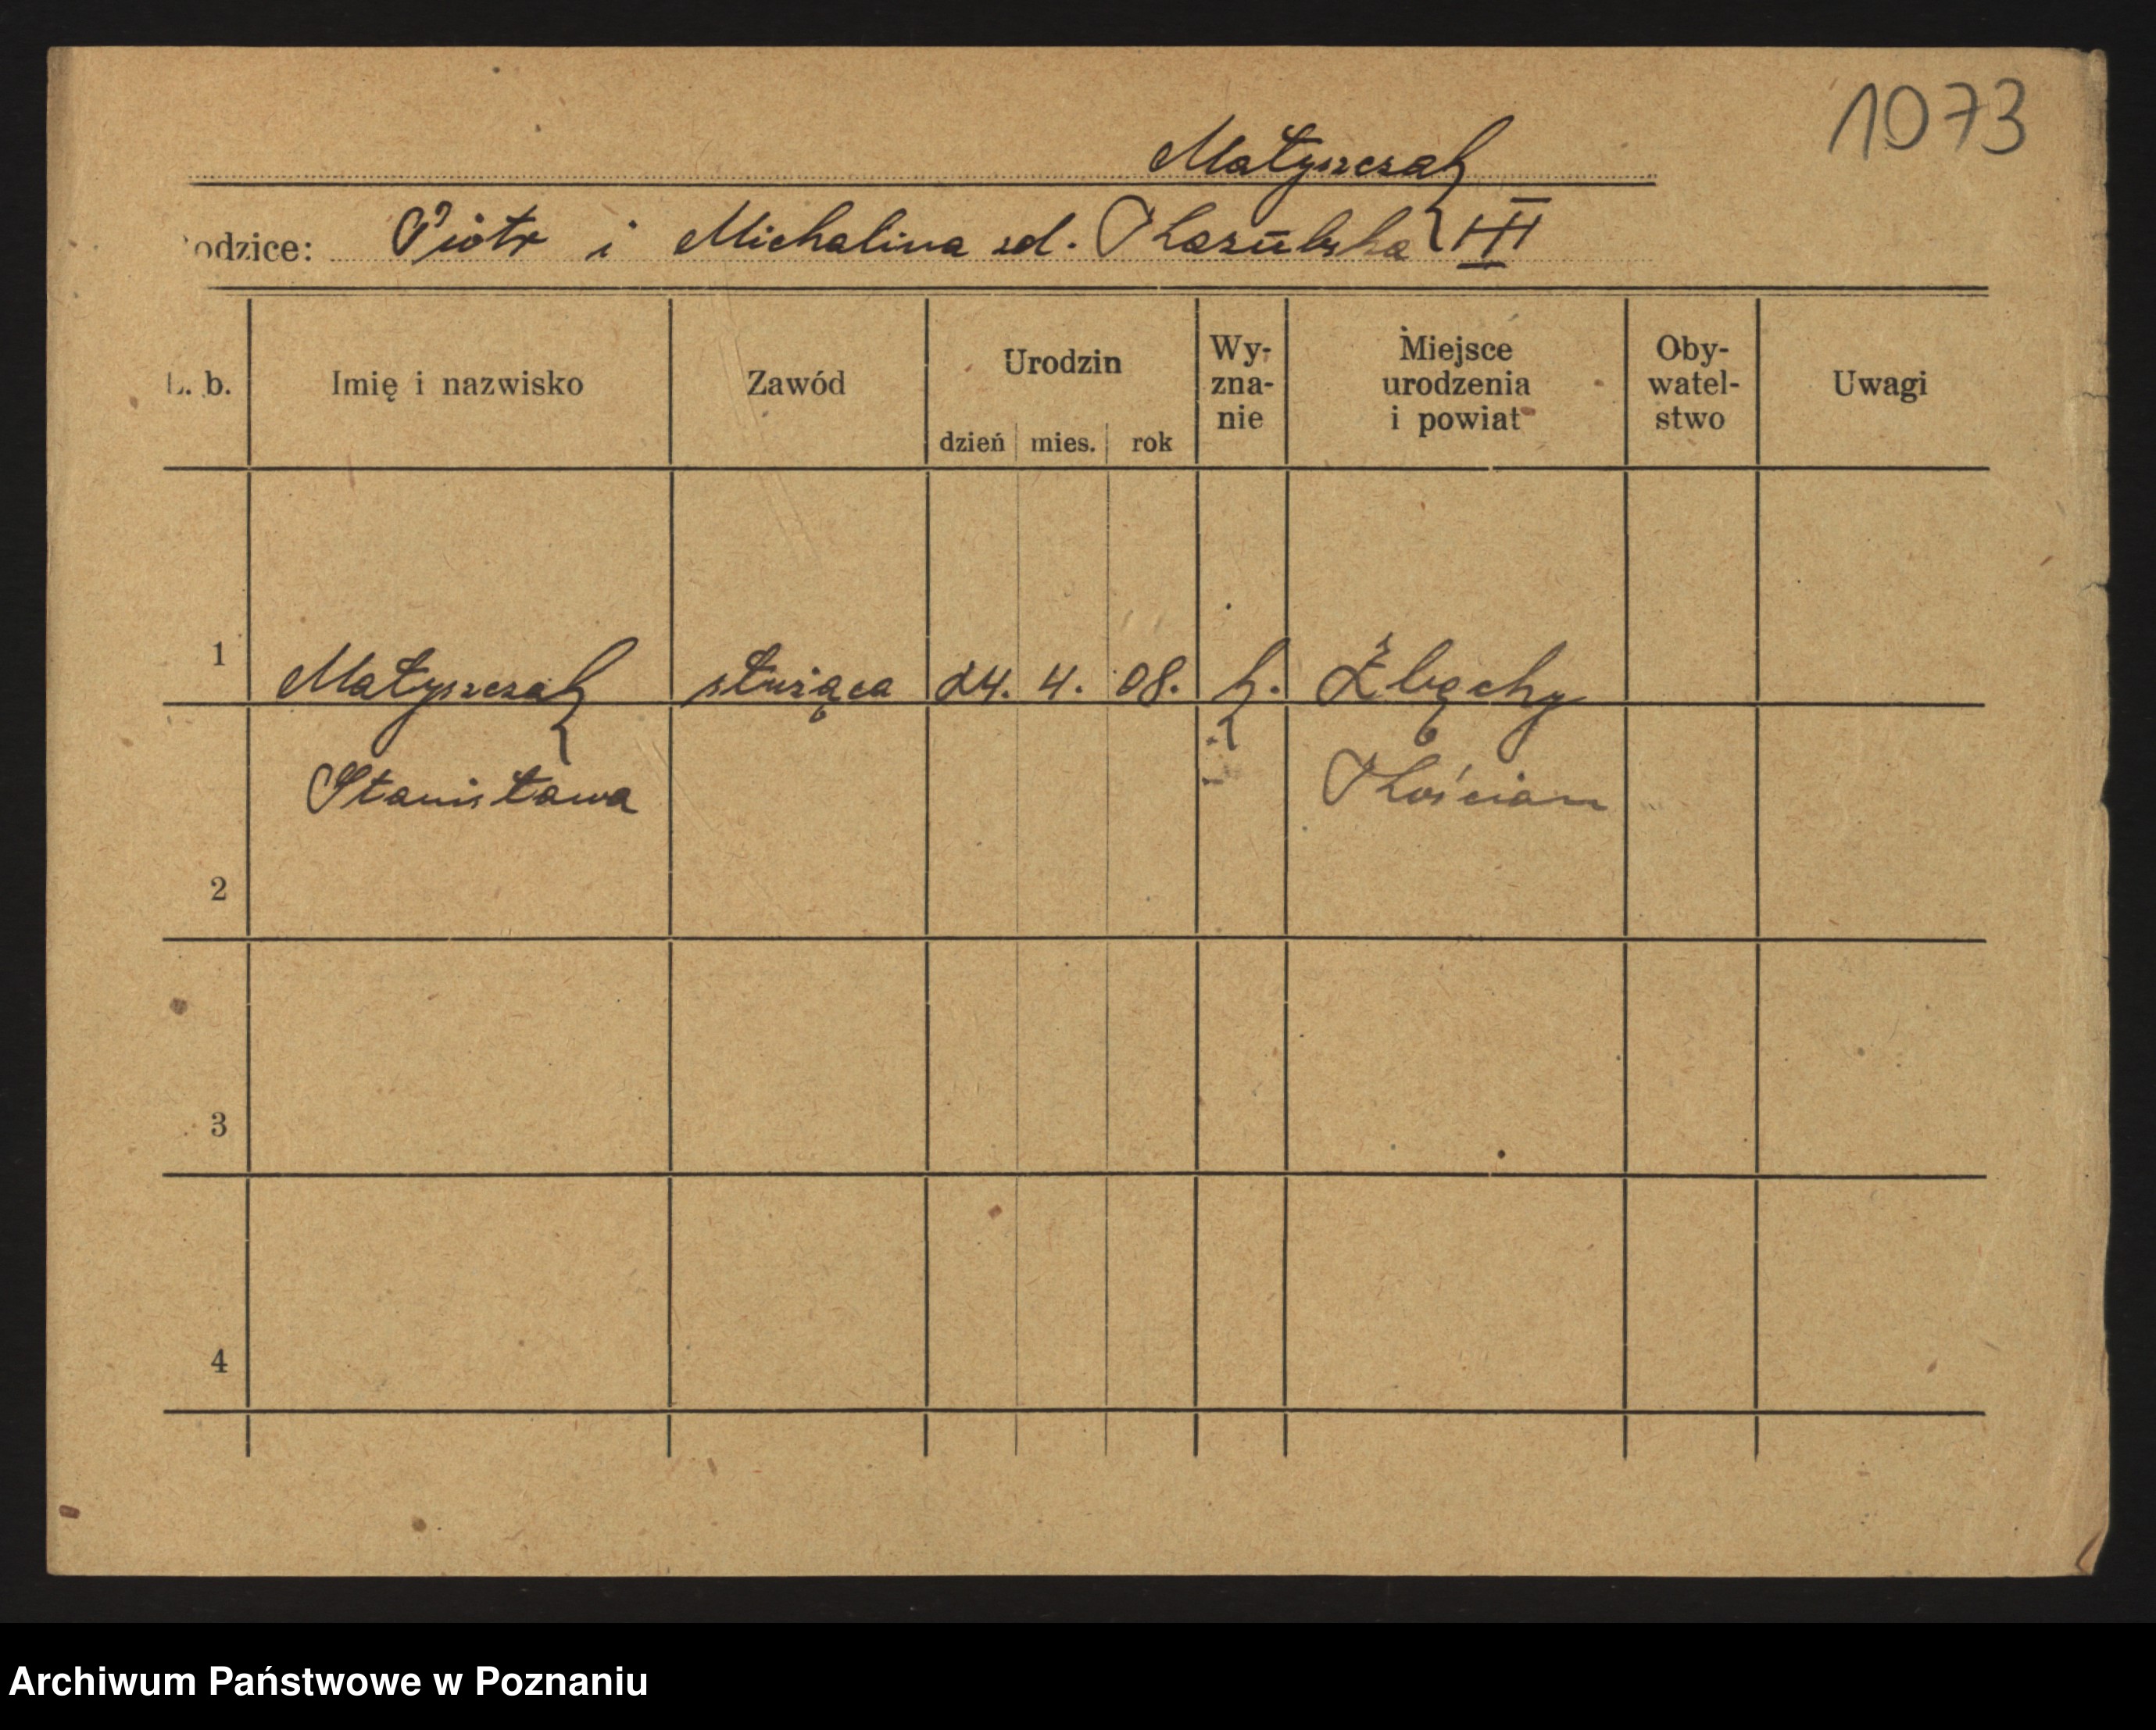 1073
Matyszczak
odzice: Piotr i Michalina zd. Kazubska III
L. b. Imię i nazwisko Zawód Urodzin dzień mies. rok Wy-zna-nie Miejsce urodzenia i powiat Oby-watel-stwo Uwagi
1 Matyszczak służąca 24. 4. 08. k. Zbęchy
Stanisława Kościan
2
3
4
Archiwum Państwowe w Poznaniu